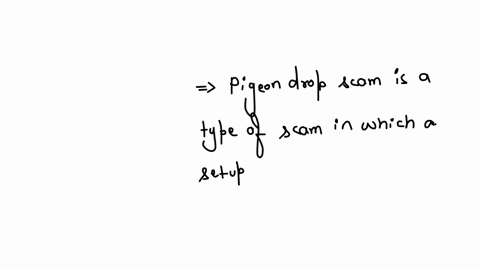 => Pigeon drop scam is a
type of scam in which a
setup